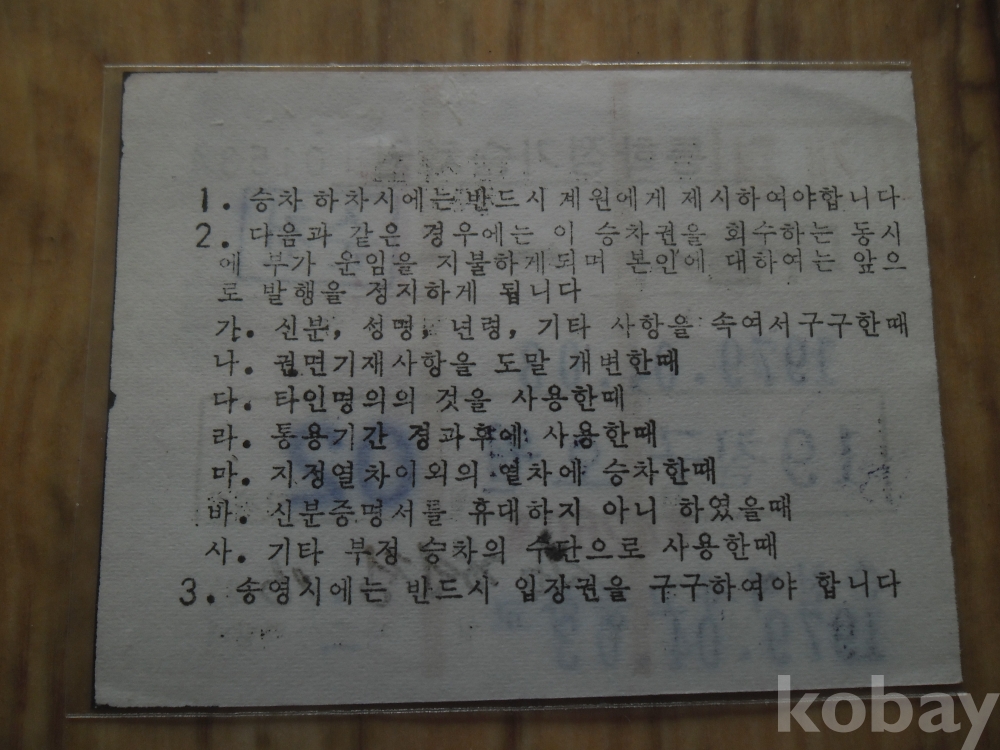 1. 승차 하차시에는 반드시 계원에게 제시하여야합니다
2. 다음과 같은 경우에는 이 승차권을 회수하는 동시
에 부가 운임을 지불하게되며 본인에 대하여는 앞으
로 발행을 정지하게 됩니다
가. 신분, 성명, 년령, 기타 사항을 속여서구구한때
나. 권면기재사항을 도말 개변한때
다. 타인명의의 것을 사용한때
라. 통용기간 경과후에 사용한때
마. 지정열차이외의 열차에 승차한때
바. 신분증명서를 휴대하지 아니 하였을때
사. 기타 부정 승차의 수단으로 사용한때
3. 송영시에는 반드시 입장권을 구구하여야 합니다
kobay